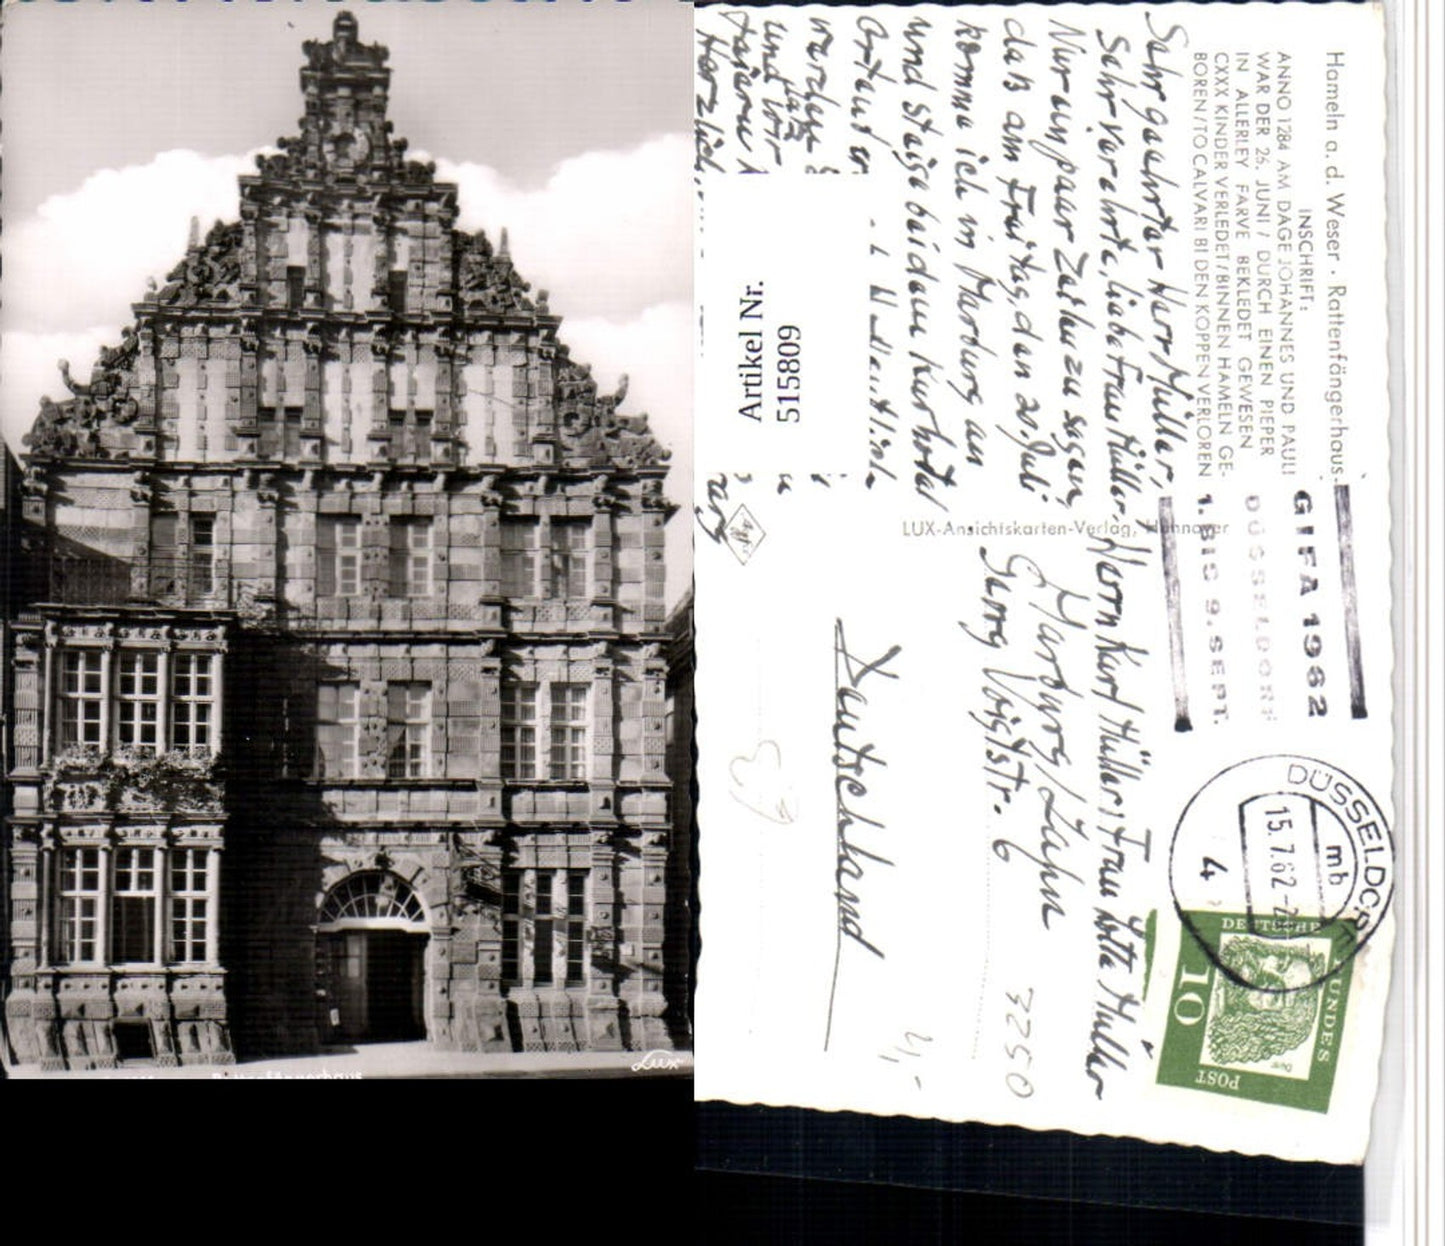 Rattenfängerhaus
Lux
Hameln a. d. Weser · Rattenfängerhaus
INSCHRIFT:
ANNO 1284 AM DAGE JOHANNES UND PAULI
WAR DER 26. JUNI / DURCH EINEN PIEPER
IN ALLERLEY FARVE BEKLEDET GEWESEN
CXXX KINDER VERLEDET/BINNEN HAMELN GE-
BOREN/TO CALVARI BI DEN KOPPEN VERLOREN
Sehr geehrter Herr Müller,
sehr verehrte, liebe Frau Müller.
Nur ein paar Zeilen zu sagen,
daß am Freitag, den 20. Juli
komme ich in Marburg an
und steige bei dem Kurhotel
Ortenb
werden
und wir
feiern
Herzlich
Artikel Nr.
515809
LUX-Ansichtskarten-Verlag, Hannover
Agfa
GIFA 1962
DÜSSELDORF
1. BIS 9. SEPT.
DÜSSELDORF
mb
15.7.62
4
DEUTSCHE BUNDESPOST
10
Herrn Kurt Müller, Frau Lotte Müller
Marburg/Lahn
Georg Voigtstr. 6
Deutschland
3250